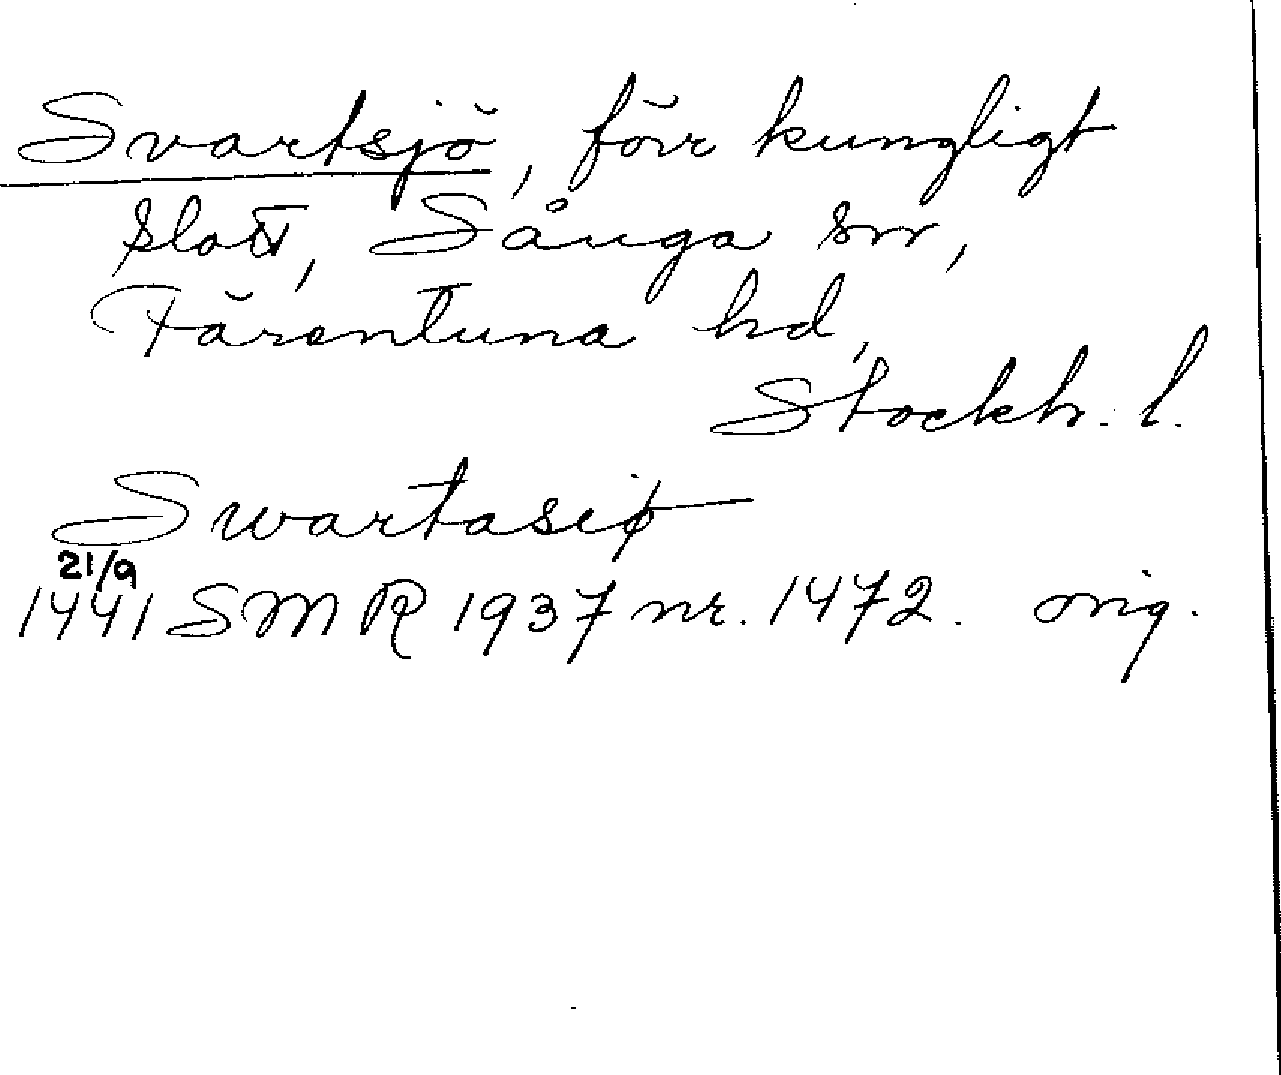 Svartsjö, förr kungligt
slott, Sånga sn,
Färentuna hd,
Stockh. l.
Swartasiø
21/9
1441 SMR 1937 nr. 1472. orig.